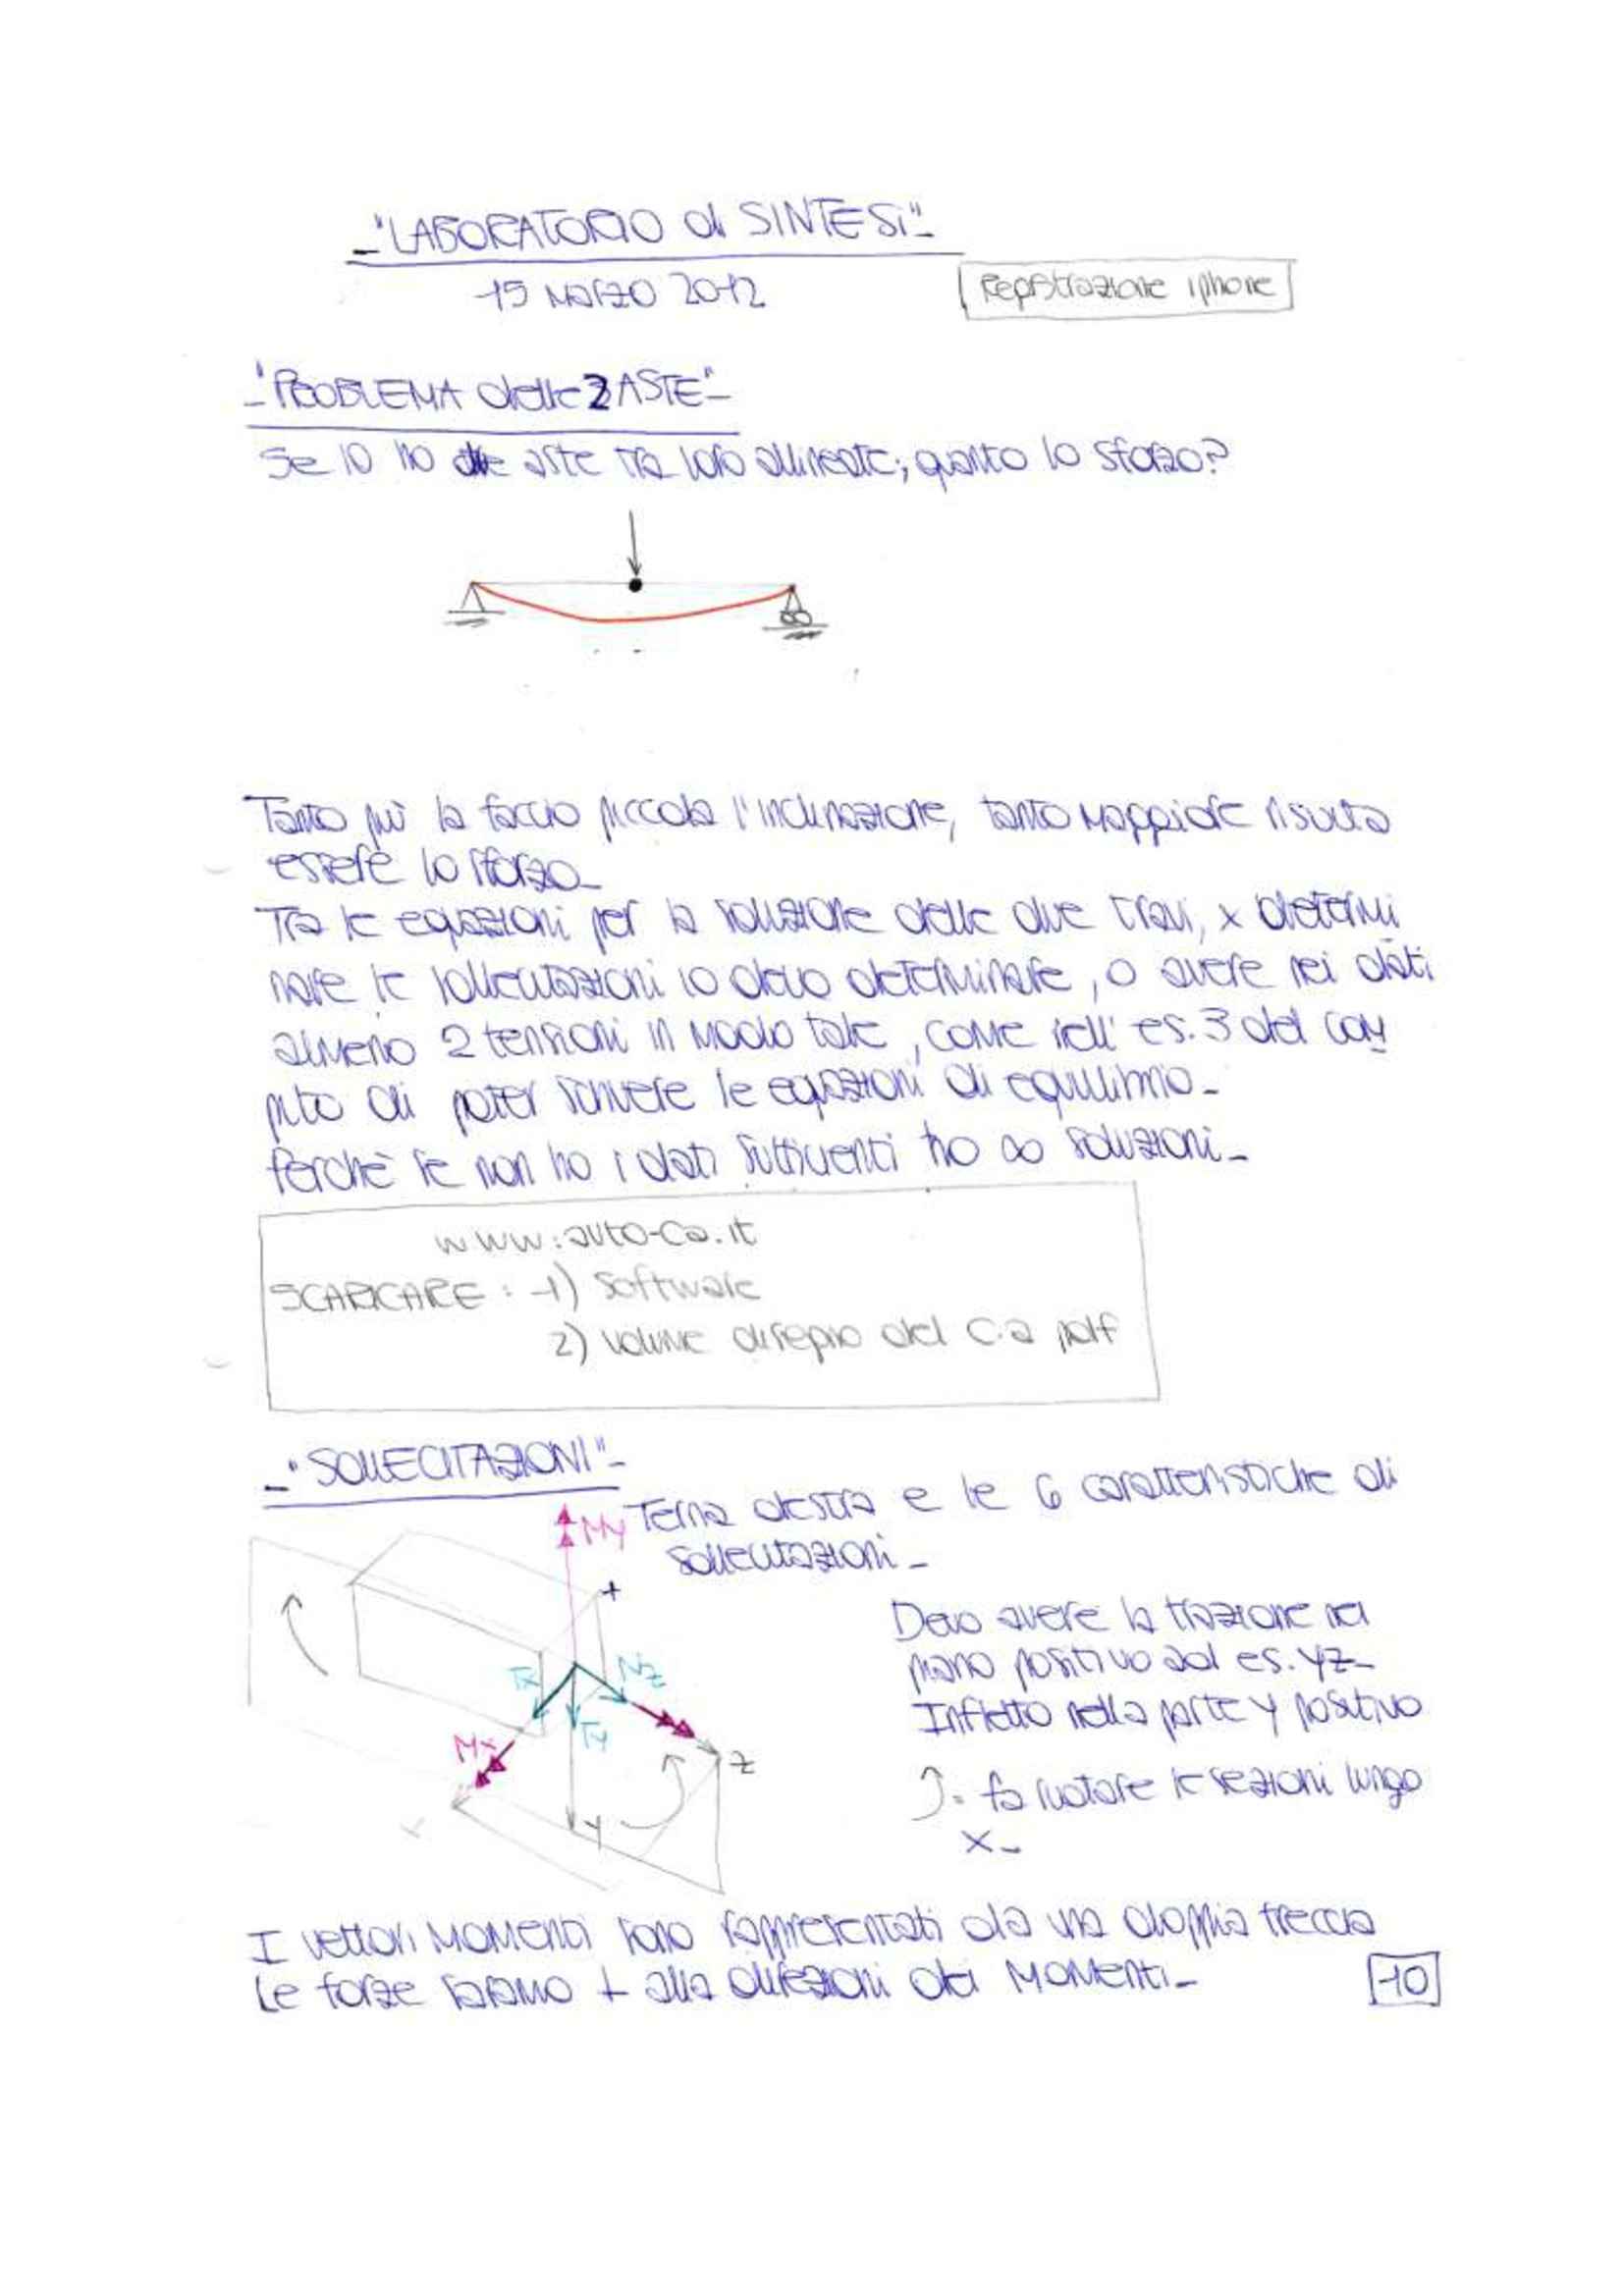 -"LABORATORIO di SINTESI"-
15 MARZO 2012
Registrazione iphone
-"PROBLEMA delle 2 ASTE"-
Se io ho due aste tra loro allineate; quanto lo sforzo?
Tanto più la faccio piccola l'inclinazione, tanto maggiore risulta
essere lo sforzo-
Tra le equazioni per la soluzione delle due travi, x determi
nare le sollecitazioni io devo determinare, o avere nei dati
almeno 2 tensioni in modo tale, come nell' es. 3 del com
pito di poter scrivere le equazioni di equilibrio-
Perchè se non ho i dati sufficienti ho ∞ soluzioni-
www.auto-ca.it
SCARICARE : 1) Software
2) volume disegno del C.a pdf
-"SOLLECITAZIONI"-
Terna destra e le 6 caratteristiche di
sollecitazioni-
My
+
Devo avere la trazione nel
piano positivo es. yz-
Infletto nella parte y positivo
Tx
Nz
Ty
Mx
z
y
: fa ruotare le sezioni lungo
x-
I vettori MOMENTI sono rappresentati da una doppia freccia
Le forze saranno ⊥ alla direzioni dei MOMENTI-
10